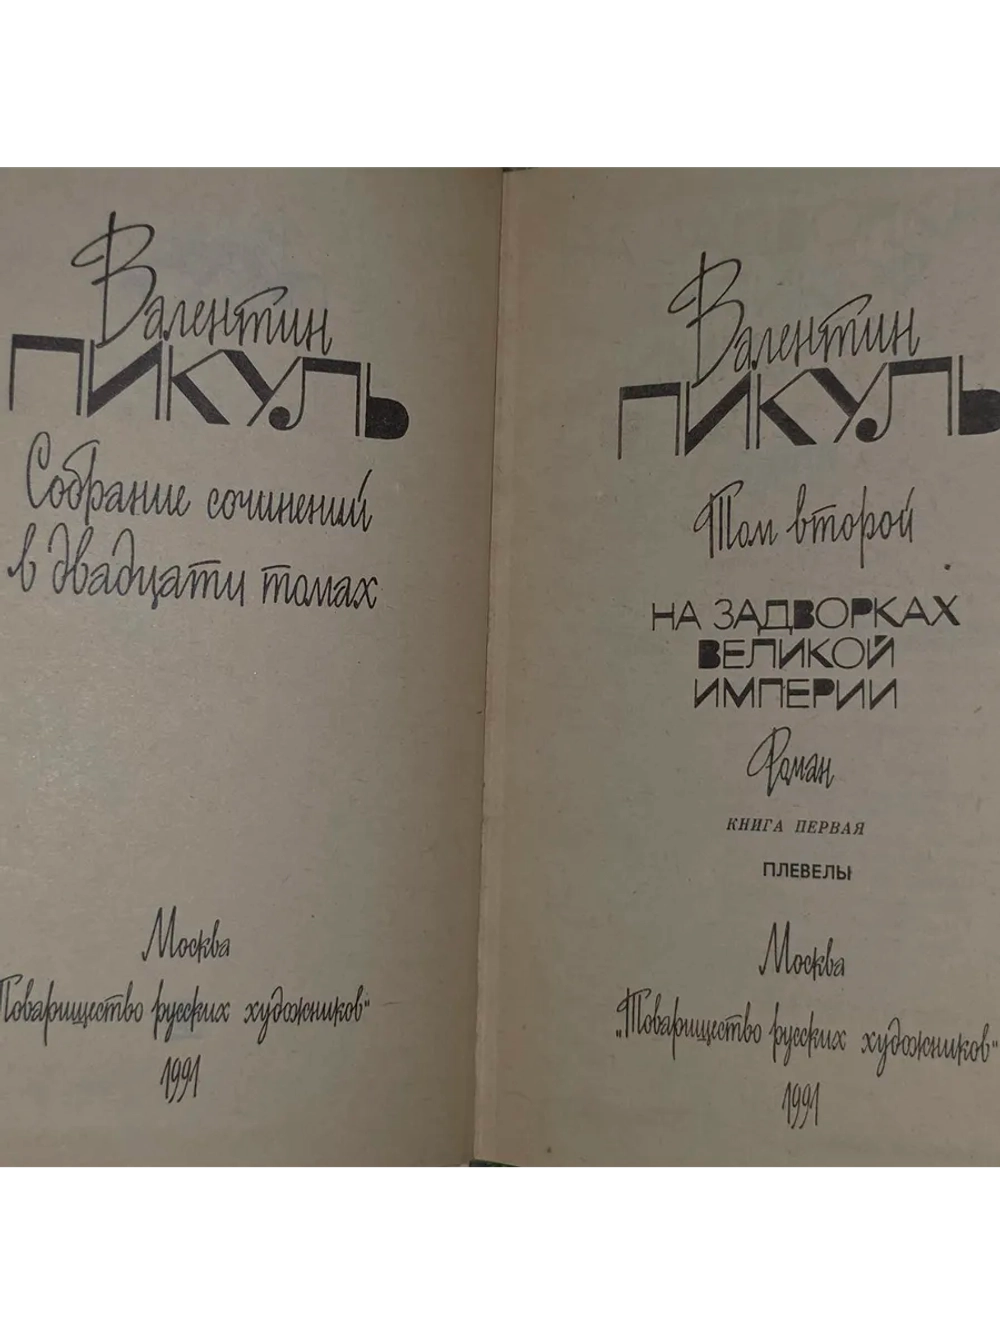 Валентин
ПИКУЛЬ
Собрание сочинений
в двадцати томах
Москва
Товарищество русских художников"
1991
Валентин
ПИКУЛЬ
Том второй
НА ЗАДВОРКАХ
ВЕЛИКОЙ
ИМПЕРИИ
Роман
КНИГА ПЕРВАЯ
ПЛЕВЕЛЫ
Москва
„Товарищество русских художников"
1991